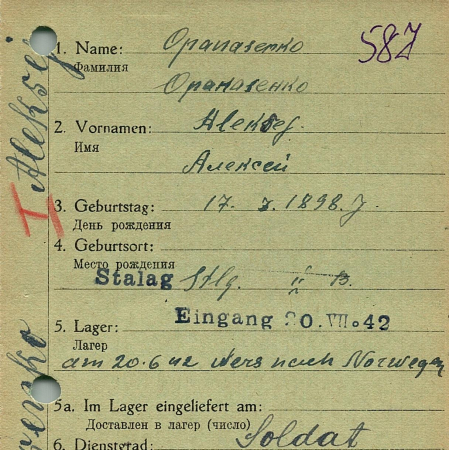 58J
1. Name: Opanasenko
Фамилия
Опанасенко
2. Vornamen: Aleksej.
Имя
Алексей
3. Geburtstag: 17. 3. 1898. J.
День рождения
4. Geburtsort:
Место рождения
Stalag Stlg. II B.
Eingang 20. VII. 42
5. Lager:
Лагер
am 20.6 42 Vers nach Norwegen
5a. Im Lager eingeliefert am:
Доставлен в лагер (число)
6. Dienstgrad: Soldat
I Aleksej
enko